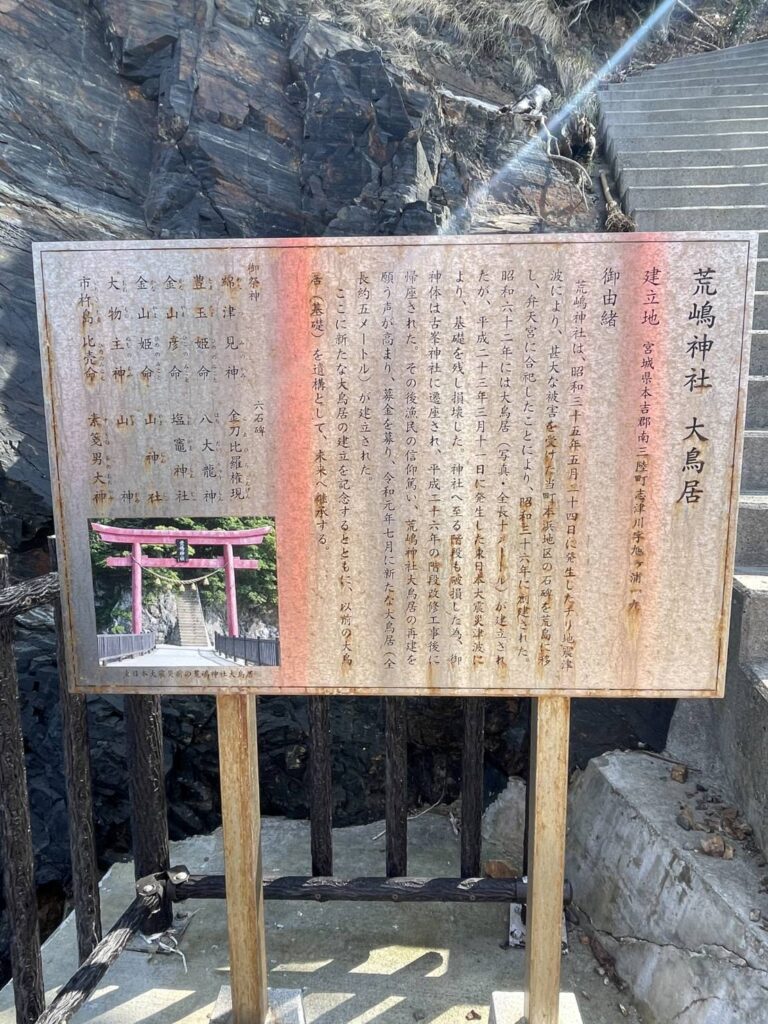 荒嶋神社　大鳥居
建立地　宮城県本吉郡南三陸町志津川字旭ヶ浦一先
御由緒
荒嶋神社は、昭和三十五年五月二十四日に発生したチリ地震津
波により、甚大な被害を受けた当町本浜地区の石碑を荒島に移
し、弁天宮に合祀したことにより、昭和三十六年に創建された。
昭和六十二年には大鳥居（写真・全長十メートル）が建立され
たが、平成二十三年三月十一日に発生した東日本大震災津波に
より、基礎を残し損壊した　神社へ至る階段も破損した為、御
神体は古峯神社に遷座され、平成二十六年の階段改修工事後に
帰座された。その後漁民の信仰篤い、荒嶋神社大鳥居の再建を
願う声が高まり、募金を募り、令和元年七月に新たな大鳥居（全
長約五メートル）が建立された。
ここに新たな大鳥居の建立を記念するとともに、以前の大鳥
居（基礎）を遺構として、未来へ継承する。
御祭神　六石碑
綿津見神　金刀比羅権現
豊玉姫命　八大龍神
金山彦命　塩竈神社
金山姫命　山神社
大物主神　山神
市杵島比売命　素戔男大神
東日本大震災前の荒嶋神社大鳥居